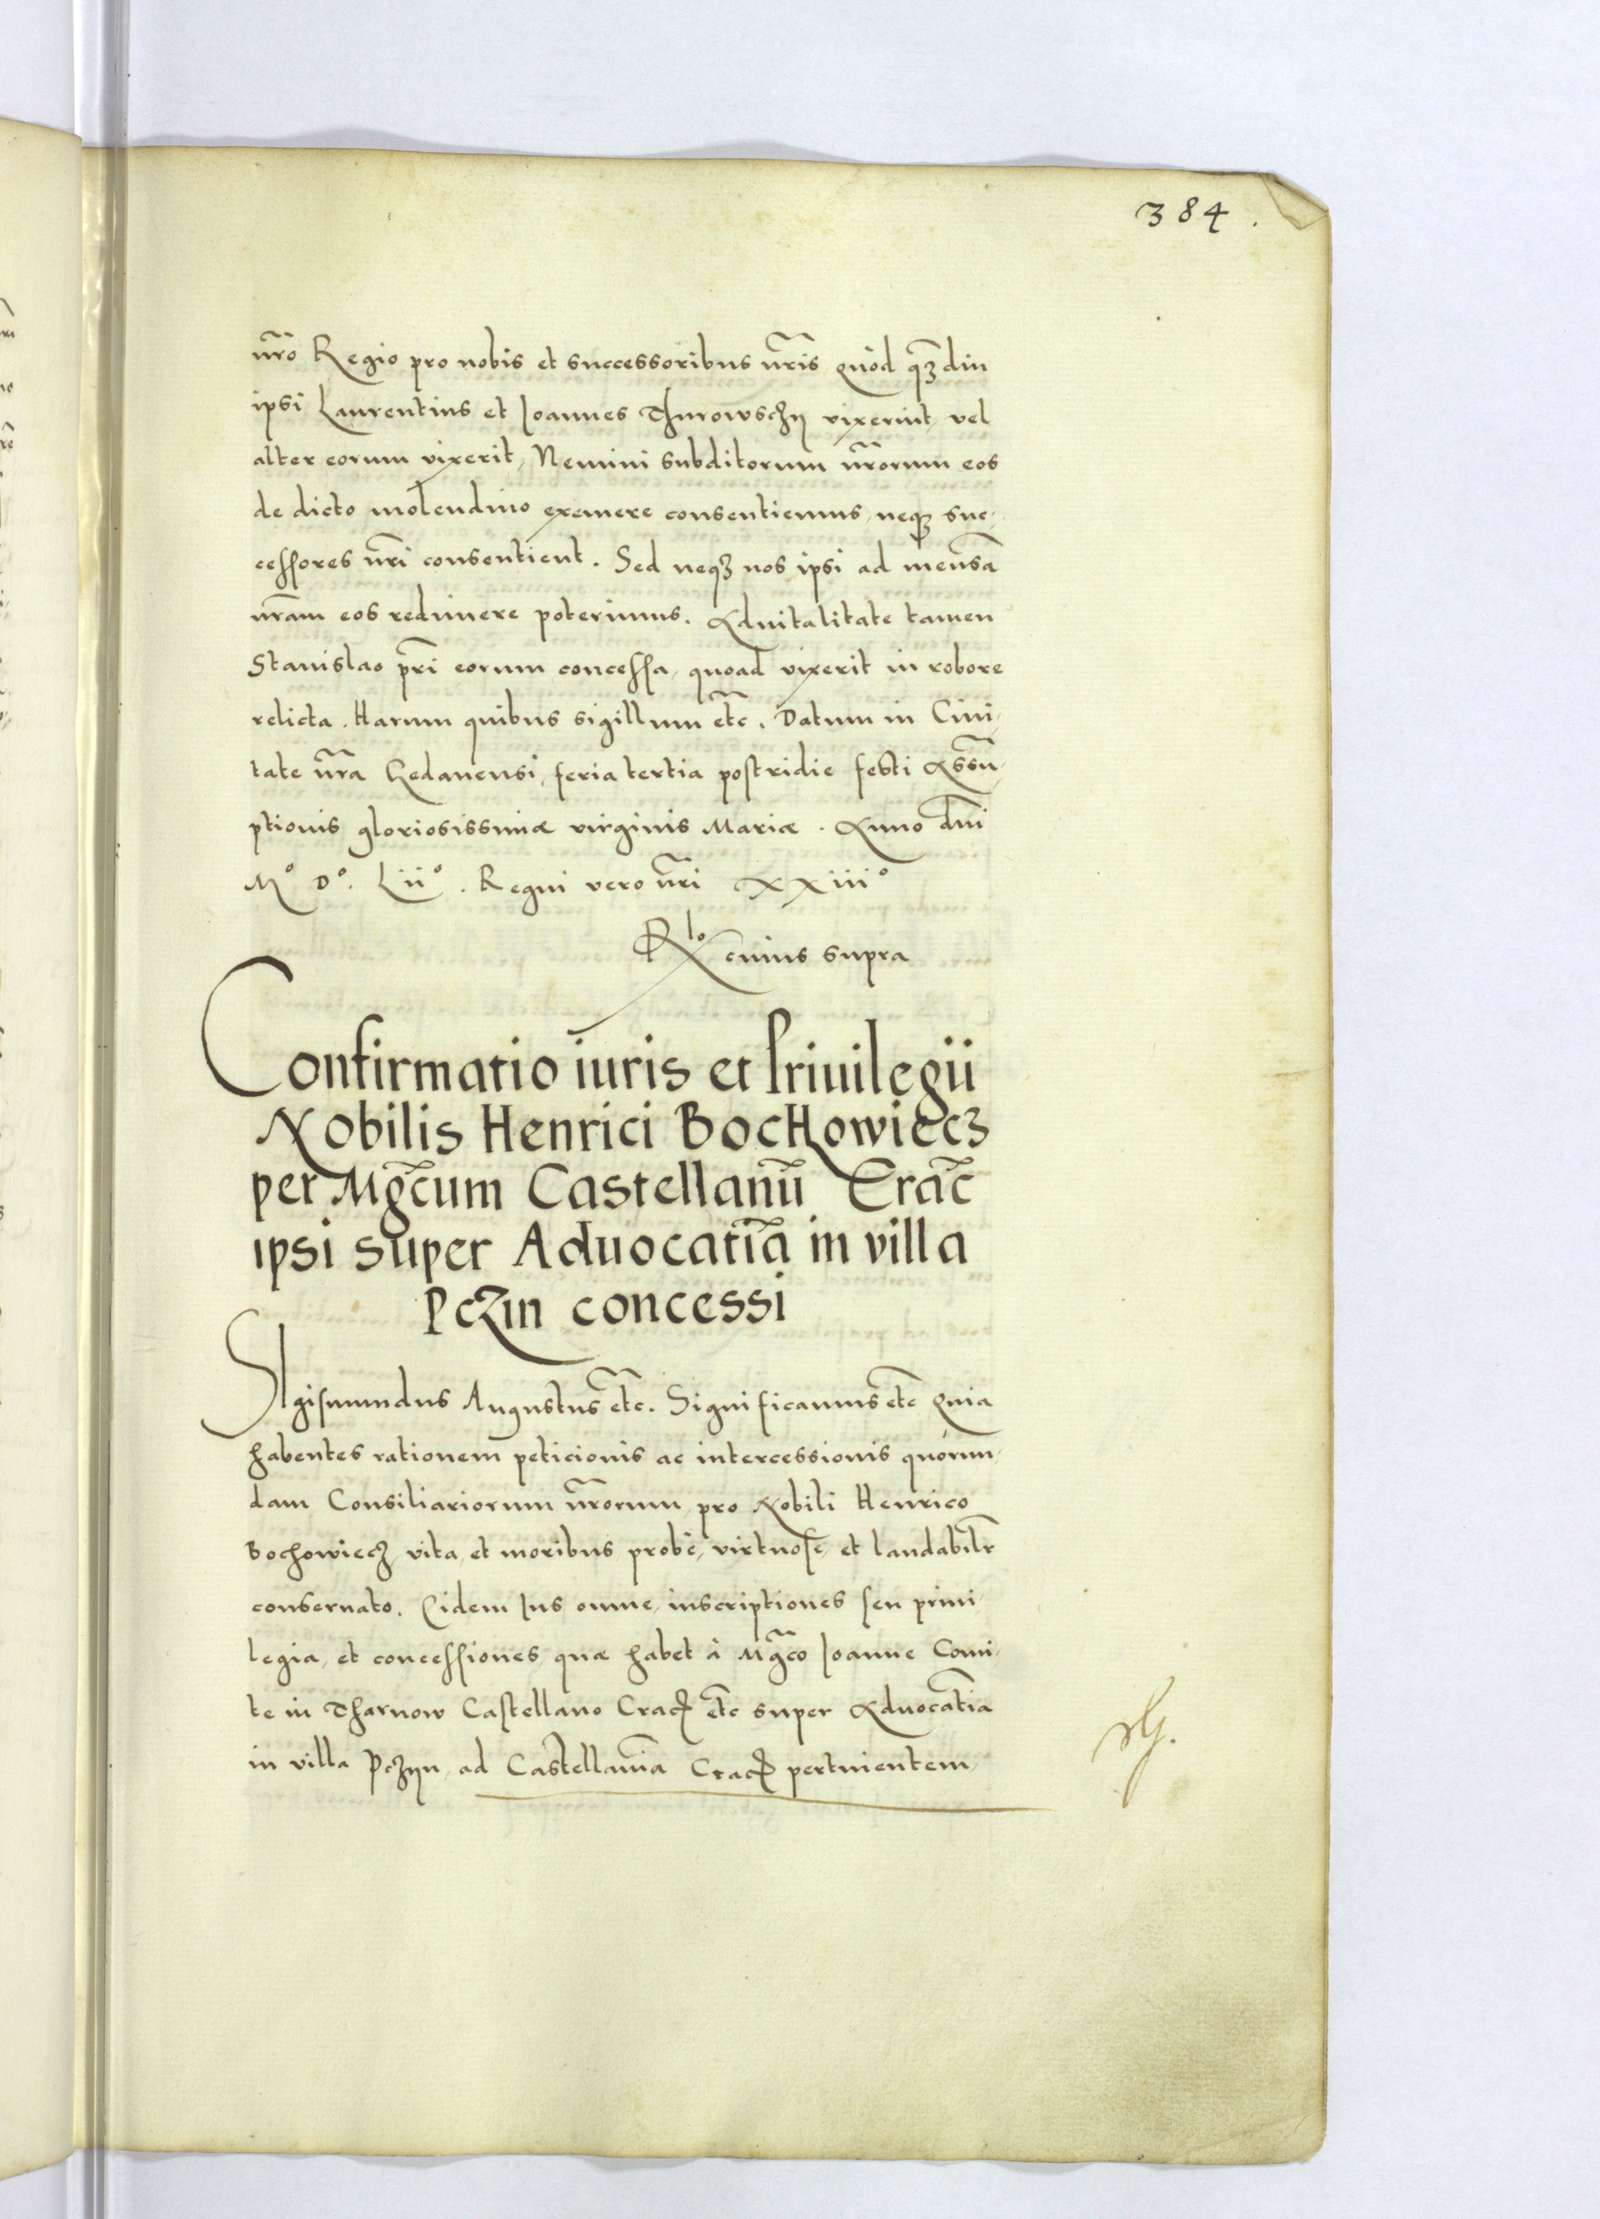 384.
nr̃o Regio pro nobis et successoribus nr̃is quòd qȝdiu
ipsi Laurentius et Joannes Thurowschÿ vixerint, vel
alter eorum vixerit, Nemini subditorum nr̃orum eos
de dicto molendino eximere consentiemus, neqȝ suc,
cessores nr̃i consentient. Sed neqȝ nos ipsi ad mensã
nr̃am eos redimere poterimus. Advitalitate tamen
Stanislao pr̃i eorum concessa, quoad vixerit in robore
relicta. Harum quibus sigillum etc̃. Datum in Civi,
tate nr̃a Gedanensi, feria tertia postridie festi Assũ,
ptionis gloriosissimæ virginis Mariæ. Anno dñi
Mº Dº. Liiº. Regni vero nr̃i xxiiiº
Rlo cuius supra
Confirmatio iuris et Privilegii
Nobilis Henrici Bochowiecz
per Mgc̃um Castellanũ Crac̃
ipsi super Aduocatiã in villa
Pczin concessi
Sigismundus Augustus etc̃. Significamus etc̃ Quia
habentes rationem peticionis ac intercessionis quòrun,
dam Consiliariorum nr̃orum, pro Nobili Henrico
Bochowiecz, vita et moribus probè, virtuose, et laudabilr̃
conservato. Eidem Jus omne, inscriptiones seu privi,
legia, et concessiones, quæ habet à Mgc̃o Joanne Comi,
te in Tharnow Castellano Crac̃ etc̃ super Advocatiã
in villa Pczÿn, ad Castellaniã Crac̃ pertinientem,